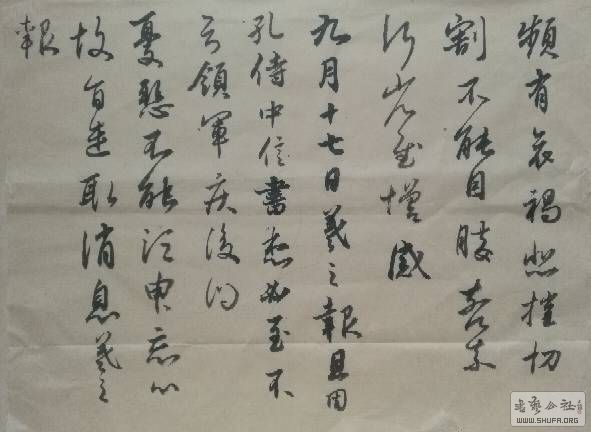 頻有哀禍悲摧切
割不能自勝奈何奈
何省慰增感
九月十七日羲之報且因
孔侍中信書想必至不
知領軍疾後問
憂懸不能須臾忘心
故旨遣取消息羲之
報
书艺公社
WWW.SHUFA.ORG